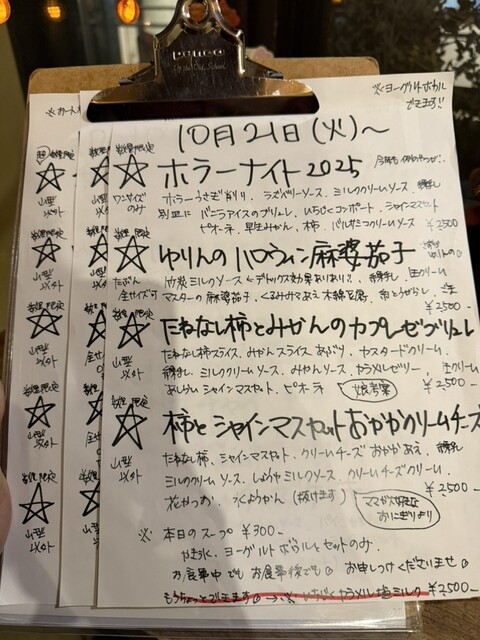 PENCO
Of the Old School
※ヨーグルトボウル
できます!!
10月21日(火)〜
数量限定
ワンサイズ
のみ
ホラーナイト2025
ホラーうさぎ削り、ラズベリーソース、ミルククリームソース、練乳
別皿に バニラアイスのブリュレ、いちじくコンポート、シャインマスカット
ピオーネ、早生みかん、柿、バルサミコクリームソース ¥2500
数量限定
たぶん
全サイズ可
ゆりんのハロウィン麻婆茄子
竹炭ミルクソース ←デトックス効果ありあり?、練乳、生クリーム
マスターの麻婆茄子、くるみみそあえ木綿豆腐、糸とうがらし
¥2500-
数量限定
山型
以外
たねなし柿とみかんのカプレーゼブリュレ
たねなし柿スライス、みかんスライス、あぶり、カスタードクリーム、
練乳、ミルククリームソース、みかんソース、カラメルゼリー、生クリーム
あしらい シャインマスカット、ピオーネ 娘考案 ¥2500-
数量限定
山型
以外
柿とシャインマスカットおかかクリームチーズ
たねなし柿、シャインマスカット、クリームチーズおかかあえ、練乳
ミルククリームソース、しょうゆミルクソース、クリームチーズクリーム、
花かつお、水ようかん(抜けます) ¥2500-
ママが大好きな
おにぎりより
※ 本日のスープ ¥300-
かき氷、ヨーグルトボウルとセットのみ、
お食事中でも お食事後でも お申しつけくださいませ
もうちょっとできます → ※ いちじくカラメル塩ミルク ¥2500-